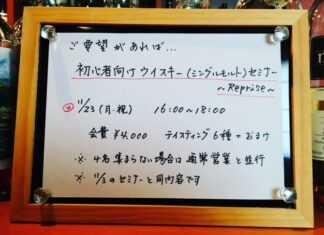 ご要望があれば…
初心者向けウイスキー(シングルモルト)セミナー
～Reprise～
11/23(月・祝) 16:00~18:00
会費 ¥4,000 テイスティング6種+おまけ
※4名集まらない場合は通常営業と並行
※11/3のセミナーと同内容です